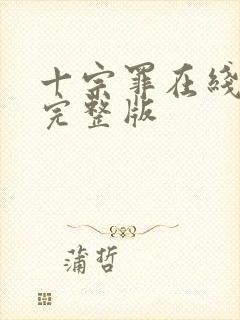 十宗罪在綫
完整版
蒲哲